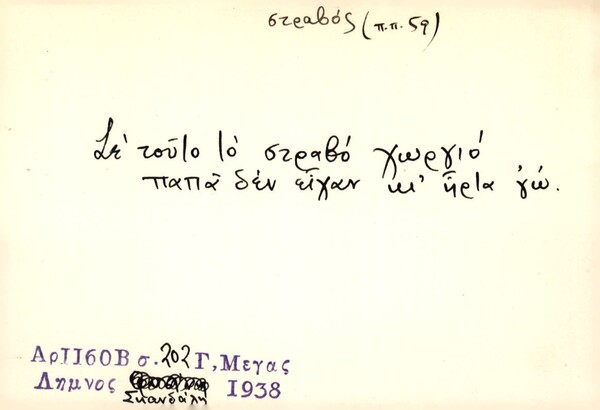 στραβός (π.π. 59)
Σὲ τοῦτο τὸ στραβό χωργιό
παπᾶ δέν εἶχαν κι' ἦρτα γώ.
Αρ 1160Β σ. 202 Γ, Μεγας
Λημνος Σκανδάλη 1938